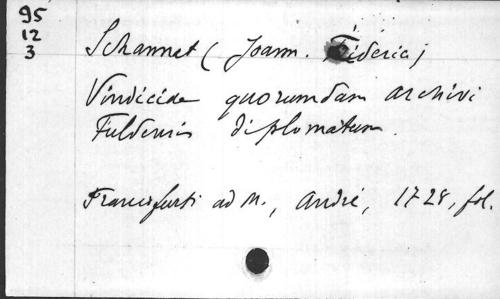 95
12
3
Schannat (Joann. Frideric)
Vindiciae quorumdam archivi
Fuldensis diplomatum.
Francofurti ad M., André, 1728, fol.